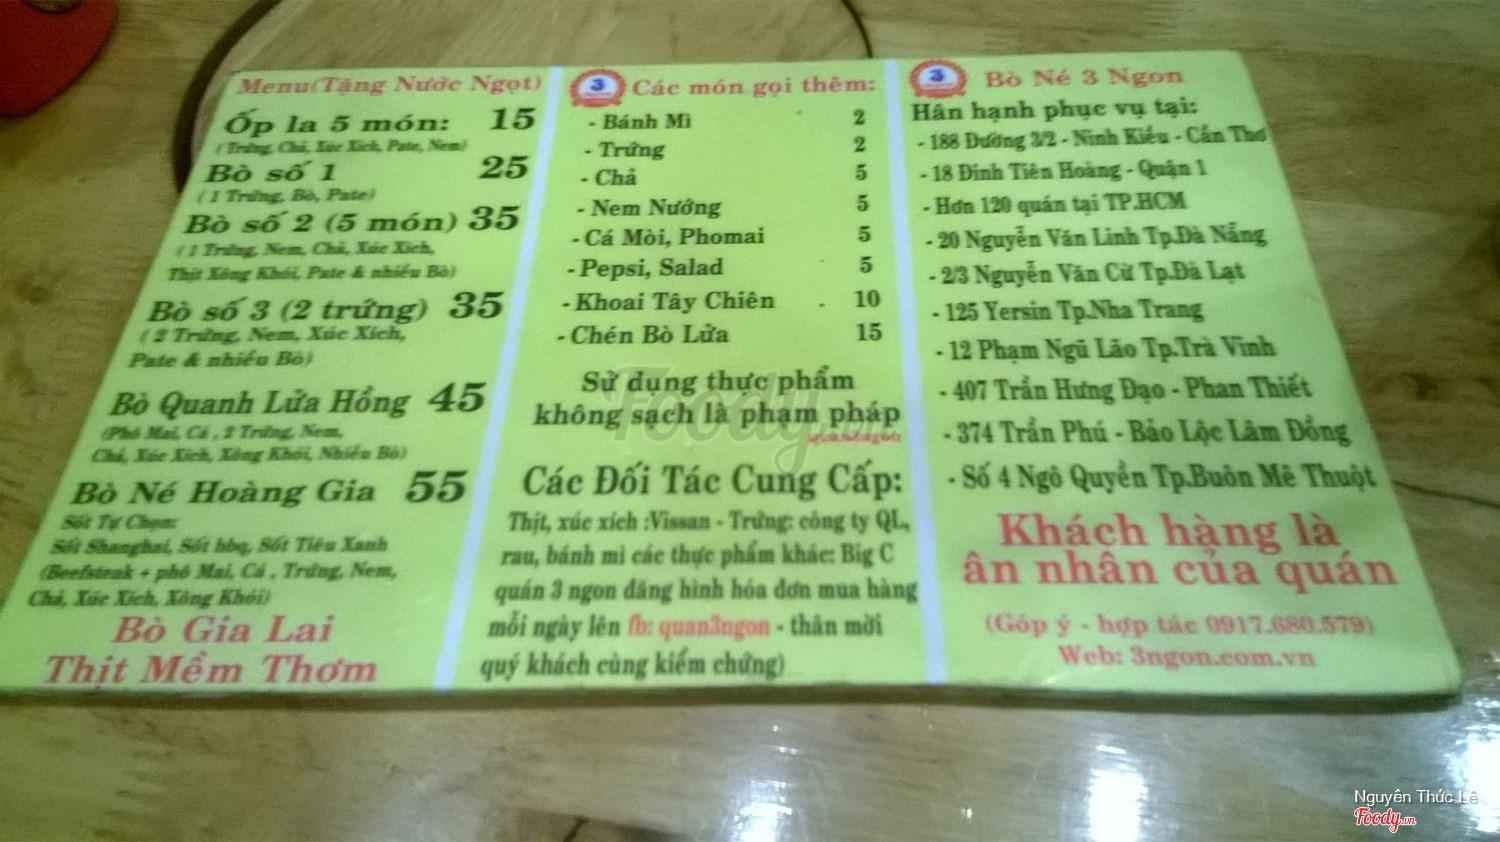 Menu(Tặng Nước Ngọt)
Ốp la 5 món: 15
(Trứng, Chả, Xúc Xích, Pate, Nem)
Bò số 1 25
(1 Trứng, Bò, Pate)
Bò số 2 (5 món) 35
(1 Trứng, Nem, Chả, Xúc Xích,
Thịt Xông Khói, Pate & nhiều Bò)
Bò số 3 (2 trứng) 35
(2 Trứng, Nem, Xúc Xích,
Pate & nhiều Bò)
Bò Quanh Lửa Hồng 45
(Phô Mai, Cá, 2 Trứng, Nem,
Chả, Xúc Xích, Xông Khói, Nhiều Bò)
Bò Né Hoàng Gia 55
Sốt Tự Chọn:
Sốt Shanghai, Sốt bbq, Sốt Tiêu Xanh
(Beefsteak + phô Mai, Cá, Trứng, Nem,
Chả, Xúc Xích, Xông Khói)
Bò Gia Lai
Thịt Mềm Thơm
3 Các món gọi thêm:
- Bánh Mì 2
- Trứng 2
- Chả 5
- Nem Nướng 5
- Cá Mòi, Phomai 5
- Pepsi, Salad 5
- Khoai Tây Chiên 10
- Chén Bò Lửa 15
Sử dụng thực phẩm
không sạch là phạm pháp
Các Đối Tác Cung Cấp:
Thịt, xúc xích :Vissan - Trứng: công ty QL,
rau, bánh mì các thực phẩm khác: Big C
quán 3 ngon đăng hình hóa đơn mua hàng
mỗi ngày lên fb: quan3ngon - thân mời
quý khách cùng kiểm chứng)
3 Bò Né 3 Ngon
Hân hạnh phục vụ tại:
- 188 Đường 3/2 - Ninh Kiều - Cần Thơ
- 18 Đinh Tiên Hoàng - Quận 1
- Hơn 120 quán tại TP.HCM
- 20 Nguyễn Văn Linh Tp.Đà Nẵng
- 2/3 Nguyễn Văn Cừ Tp.Đà Lạt
- 125 Yersin Tp.Nha Trang
- 12 Phạm Ngũ Lão Tp.Trà Vinh
- 407 Trần Hưng Đạo - Phan Thiết
- 374 Trần Phú - Bảo Lộc Lâm Đồng
- Số 4 Ngô Quyền Tp.Buôn Mê Thuột
Khách hàng là
ân nhân của quán
(Góp ý - hợp tác 0917.680.579)
Web: 3ngon.com.vn
Foody.vn
Nguyên Thức Lê
Foody.vn